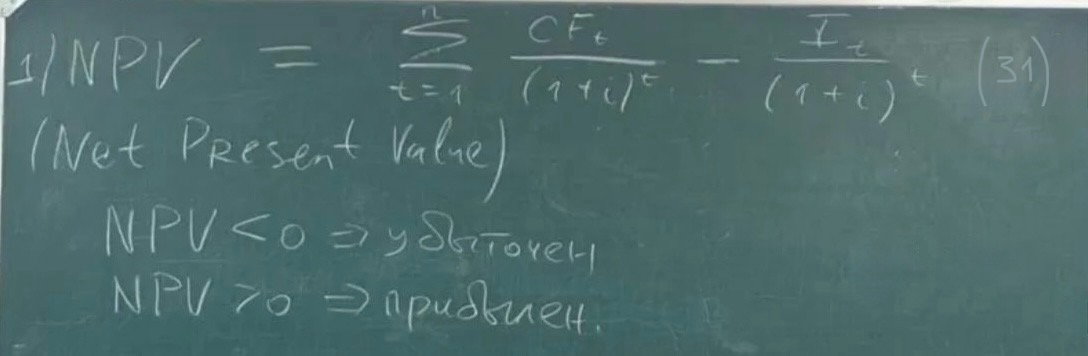 1) NPV = \sum_{t=1}^{n} \frac{CF_t}{(1+i)^t} - \frac{I_t}{(1+i)^t} (31)
(Net Present Value)
NPV < 0 ⇒ убыточен
NPV > 0 ⇒ прибылен.